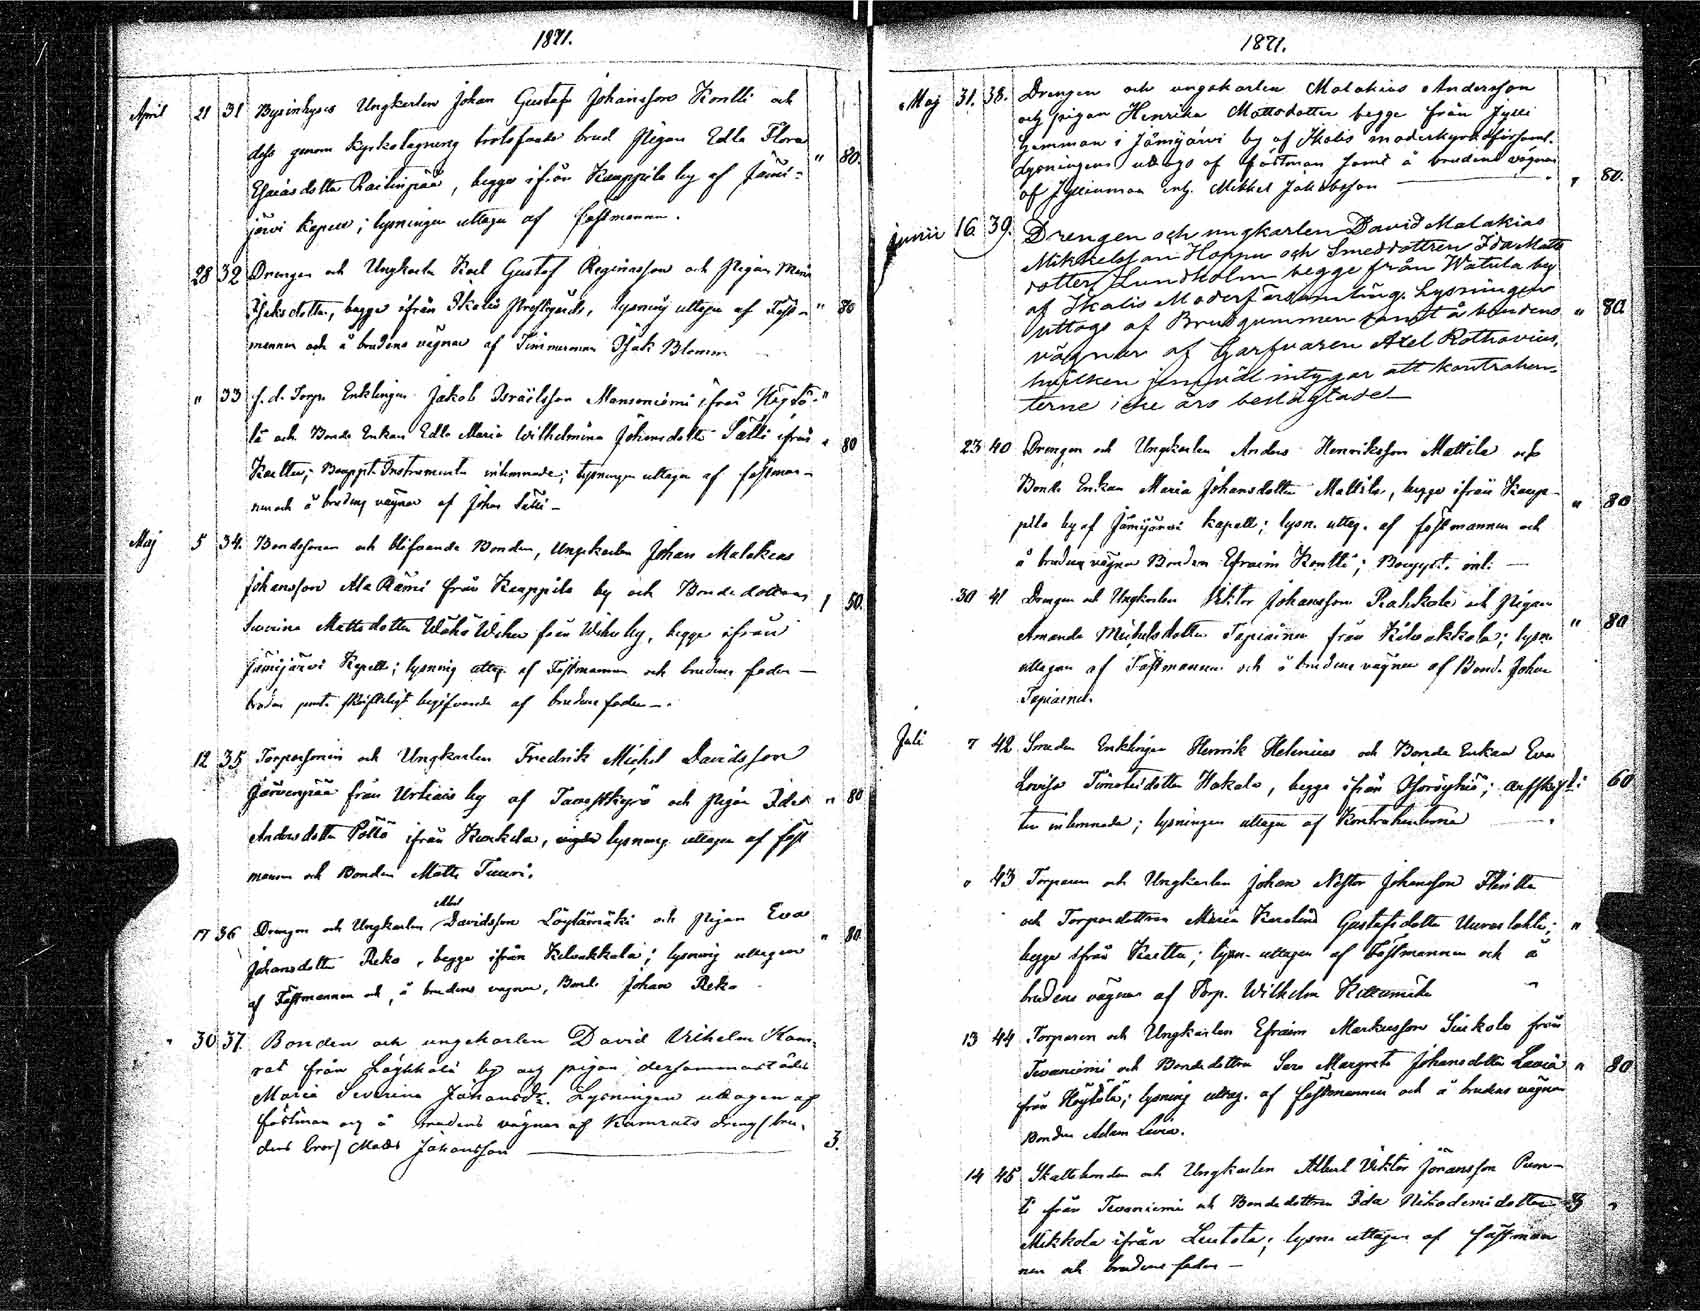 1871.
April 21 31 Bysinhyses Ungkarlen Johan Gustaf Johansson Kontti och
dess genom kyrkotagning trolofvade brud Pigan Edla Flora
Esaiasdotter Raitinpää, begge ifrån Kauppila by af Jämi- " 80.
järvi Kapell; lysningen uttagen af fästmannen.
28 32 Drengen och Ungkarlen Karl Gustaf Reginasson och Pigan Mina
Isaksdotter, begge ifrån Ikalis Prestgård, lysning uttagen af Fäst- " 80
mannen och å brudens vägnar af Timmerman Isak Blomm
" 33 f. d. Torp. Enklingen Jakob Israelsson Mansoniemi ifrån Höytö-"
lä och Bonde Enkan Edla Maria Wilhelmina Johansdotter Sätti ifrån " 80
Kartu; Bouppt. Instrumenta inlemnade; lysningen uttagen af fästman-
nen och å brudens vägnar af Johan Sätti -
Maj 5 34. Bondesonen och blifvande Bonden, Ungkarlen Johan Malakias
Johansson Ala Rämi från Kauppila by och Bondedottren 1 50.
Severina Mattsdotter Wähä Wihu från Wihu by, begge ifrån
Jämijärvi Kapell; lysning uttag. af Fästmannen och brudens fader -
broder samt skriftligt begifvande af brudens fader -.
12 35 Torparsonen och Ungkarlen Fredrik Michel Davidsson
Järvenpää från Urtiais by af Tavastkyrö och Pigan Ida " 80
Andersdotter Pöllö ifrån Kurkela, lysning uttagen af fäst
mannen och Bonden Matts Tuuri.
17 36 Drengen och Ungkarlen Abel Davidsson Löytömäki och Pigan Eva
Johansdotter Reko, begge ifrån Kilvakkala; lysning uttagen " 80
af Fästmannen och å brudens vägnar, Bond. Johan Reko
" 30 37. Bonden och ungkarlen David Vilhelm Kam-
rat från Läykkälä by och pigan dersammastädes
Maria Severina Johansdr. Lysningen uttagen af
fästman och å brudens vägnar af Kamrats dreng (bru-
dens bror) Matts Johansson 3.
1871.
Maj 31. 38. Drengen och ungkarlen Malakias Andersson
och pigan Henrika Mattsdotter begge från Jylli
hemman i Jämijärvi by af Ikalis moderkyrkoförsaml.
Lysningen uttogs af fästman samt å brudens vägnar
af Mikkel Jakobsson " 80.
Junii 16. 39. Drengen och ungkarlen David Malakias
Mikkelsson Hoppu och Smeddottren Ida Matts
dotter Lundholm begge från Watula by
af Ikalis Moderförsamling. Lysningen
uttogs af Brudgummen samt å brudens " 80.
vägnar af Garfvaren Axel Rothovius,
hvilken jemväl intygar att kontrahen-
terne icke äro beslägtade
23 40 Drengen och Ungkarlen Anders Henriksson Mattila och
Bonde Enkan Maria Johansdotter Mattila, begge ifrån Kaup- " 80
pila by af Jämijärvi kapell; lysn. uttag. af fästmannen och
å brudens vägnar Bonden Efraim Kontti; Bouppt. inl. -
30 41 Drengen och Ungkarlen Viktor Johansson Rahkola och Pigan
Amanda Michelsdotter Tapiainen från Kilvakkala; lysn. " 80
uttagen af Fästmannen och å brudens vägnar af Bond. Johan
Tapiainen.
Juli 7 42 Smeden Enklingen Henrik Helenius och Bonde Enkan Eva
Lovisa Timoteidotter Hakala, begge ifrån Sforöykiö; arfskif- 1: 60
ten inlemnade; lysningen uttagen af Kontrahenterna
" 43 Torparen och Ungkarlen Johan Nestor Johansson Flinkka
och Torparedottren Maria Karolina Gustafsdotter Uuraslahti; "
begge ifrån Kartu; lysn. uttagen af Fästmannen och å
brudens vägnar af Torp. Wilhelm
13 44 Torparen och Ungkarlen Efraim Markusson Siukola från
Tevaniemi och Bondedottren Sara Margreta Johansdotter Lavia " 80
från Höytölä; lysning uttag. af fästmannen och å brudens vägnar
Bonden Adam Lavia.
14 45 Skattebonden och Ungkarlen Albert Viktor Göransson Pun-
ti från Tevaniemi och Bondedottren Ida Nikodemidotter 3 "
Mikkola ifrån Leutola; lysn. uttagen af fästman
nen och brudens fader -